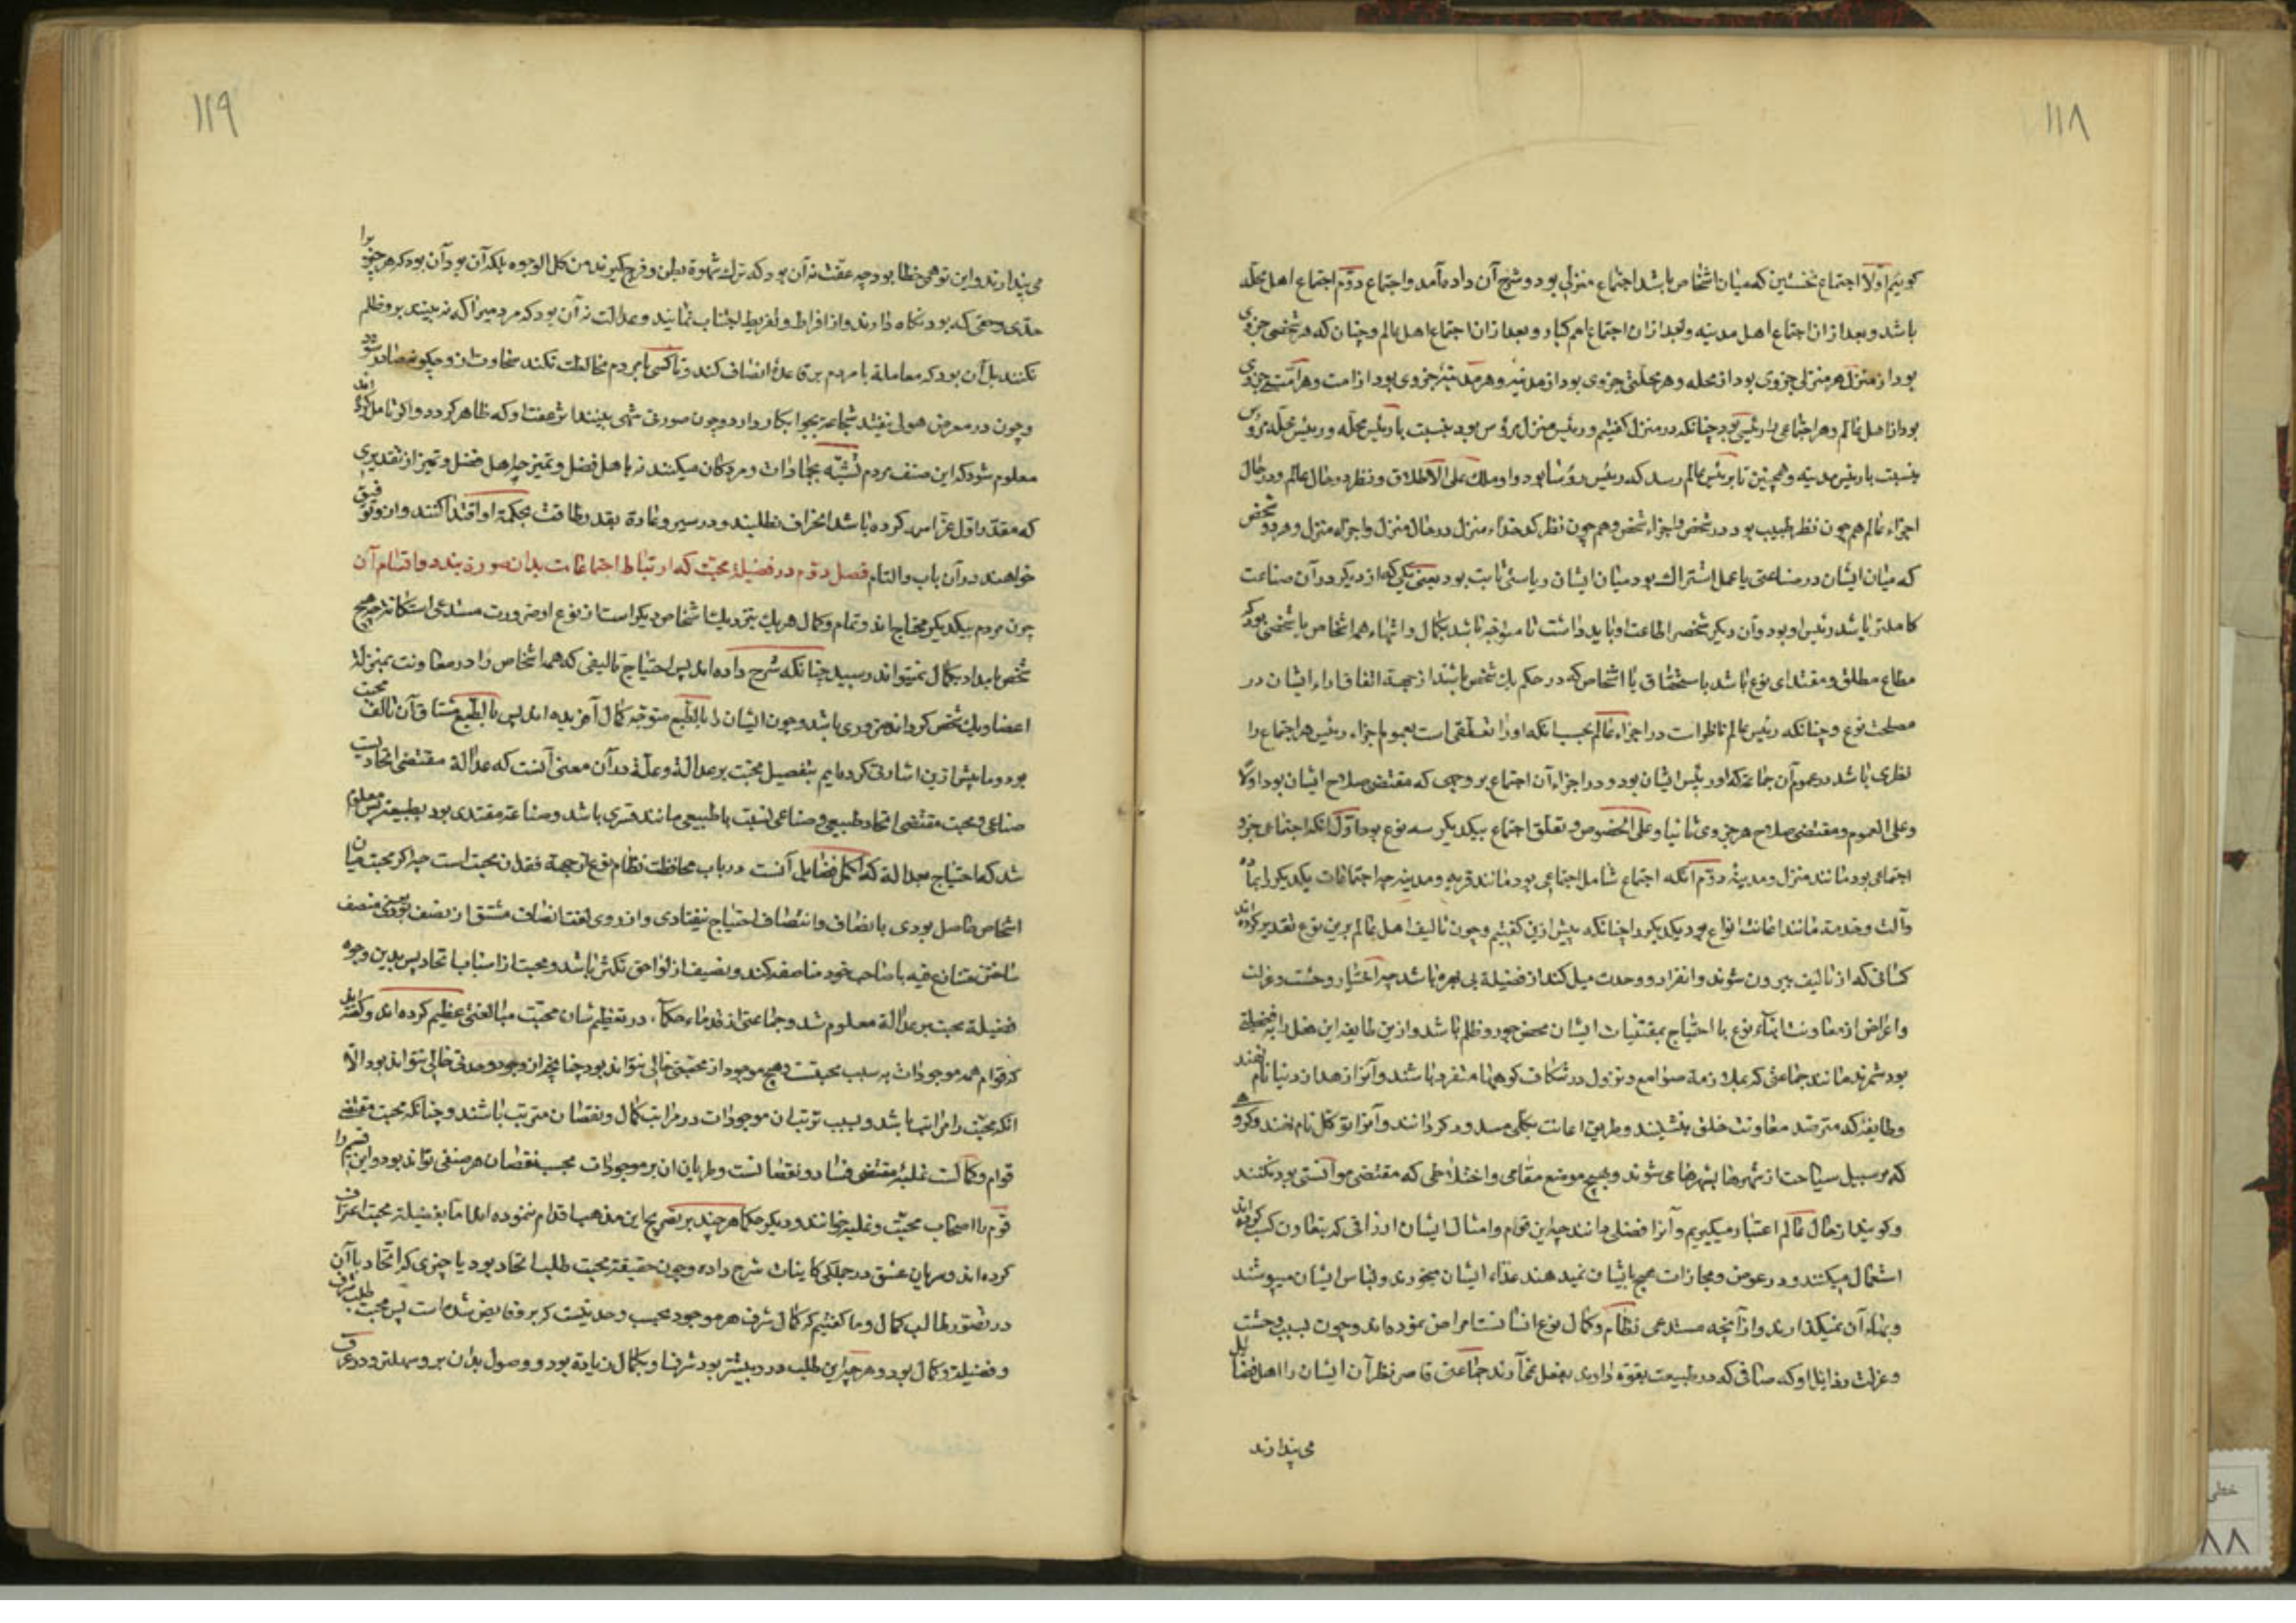 ۱۱۸
گوئیم اولا اجتماع نخستین که میان اشخاص باشد اجتماع منزلی بود و شرح آن داده آمد و اجتماع دوم اجتماع اهل محله
باشد و بعد از ان اجتماع اهل مدینه و بعد از ان اجتماع امم کبار و بعد از ان اجتماع اهل عالم و چنان که هر شخصی جزوی
بود از منزل هر منزلی جزوی بود از محله و هر محلتی جزوی بود از مدینه و هر مدینه جزوی بود از امت و هر امتی جزوی
بود از اهل عالم و هر اجتماعی را رئیسی بود چنانکه در منزل گفتیم و رئیس منزل مرؤس بود بنسبت با رئیس محله و رئیس محله مرؤس
بنسبت با رئیس مدینه و همچنین تا برئیس عالم رسد که رئیس رؤسا بود و او ملک علی الاطلاق و نظر در حال عالم و در حال
اجزاء عالم هم چون نظر طبیب بود در شخص و اجزاء شخص و هم چون نظر کدخداء منزل در حال منزل و اجزاء منزل و هر دو شخص
که میان ایشان در صناعتی یا عمل اشتراک بود میان ایشان ریاستی ثابت بود یعنی یکی که از دیگر در آن صناعت
کاملتر باشد رئیس او بود و آن دیگر شخص را طاعت او باید داشت تا متوجه باشد بکمال و انتهاء همه اشخاص با شخصی بود که
مطاع مطلق و مقتدای نوع باشد باستحقاق یا اشخاص که در حکم یک شخص باشند از جهة اتفاق اراء ایشان در
مصلحت نوع و چنانکه رئیس عالم ناظر است در اجزاء عالم بحسب انکه او را تعلقی است بعموم اجزاء رئیس هر اجتماع را
نظری باشد در عموم آن جماعة که او رئیس ایشان بود و در اجزاء آن اجتماع بر وجهی که مقتضی صلاح ایشان بود اولا
و علی العموم و مقتضی صلاح هر جزوی ثانیا و علی الخصوص و تعلق اجتماع بیکدیگر سه نوع بود اول انکه اجتماعی جزو
اجتماعی بود مانند منزل و مدینه دوم آنکه اجتماع شامل اجتماعی بود مانند قریه و مدینه چه اجتماعات یکدیگر را بماده
و آلت و خدمة مانند اعانت انواع بود یکدیگر را چنانکه پیش ازین گفتیم و چون تالیف اهل عالم برین نوع تقدیر کرده اند
کسانی که از تالیف بیرون شوند و انفراد و وحدت میل کنند از فضیلة بی بهره باشد چه اختیار وحشت و عزلت
و اعراض از معاونت ابناء نوع با احتیاج بمقتنیات ایشان محض جور و ظلم باشد و ازین طایفه این فعل را بفضیلة
بود شمرند مانند جماعتی که بملازمة صوامع و نزول در شکاف کوهها منفرد باشند و آنرا زهد از دنیا نام نهند
و طایفه که مترصد معاونت خلق بنشینند و طریق اعانت بکلی مسدود گردانند و آنرا توکل نام نهند و گروهی
که بر سبیل سیاحت از شهرها بشهرها می شوند و بهیچ موضع مقامی و اختلاطی که مقتضی موانستی بود نکنند
و گویند از حال عالم اعتبار میگیریم و آنرا فضلی دانند چه این قوم و امثال ایشان ارزاقی که بتعاون کسب کرده اند
استعمال میکنند و در عوض و مجازات هیچ بایشان نمیدهند غذاء ایشان میخورند و لباس ایشان میپوشند
و بهاء آن نمیگذارند و از آنچه مستدعی نظام و کمال نوع انسانست اعراض نموده اند و چون بسبب وحشت
و عزلت رذایل اوصافی که در طبیعت بقوة دارند بفعل نمی‌آرند جماعتی قاصر نظر آن ایشان را اهل فضایل
می پندارند
۱۱۹
می پندارند و این توهمی خطا بود چه عفت نه آن بود که ترک شهوة بطن و فرج گیرند من کل الوجوه بلکه آن بود که هر چیزی را
حدی و حقی که بود نگاه دارند و از افراط و تفریط اجتناب نمایند و عدالت نه آن بود که مردمی را که نه بینند برو ظلم
نکنند بل آن بود که معاملة با مردم بر قاعدۀ انصاف کند و تا کسی با مردم مخالطت نکند سخاوت ازو چگونه صادر شود
و چون در معرض هولی نیفتد شجاعة بچه کار دارد و چون صورتی شهی نبیند اثر عفت او که ظاهر گردد و اگر تامل کرده اید
معلوم شود که این صنف مردم تشبه بجمادات و مردگان میکنند نه باهل فضل و تمیز چه اهل فضل و تمیز از تقدیری
که مقدر اول عز اسمه کرده باشد انحراف نطلبند و در سیر و عادة بقدر طاقت بحکمة او اقتدا کنند و از و توفیق
خواهند در آن باب والسلام فصل دوم در فضیلة محبت که ارتباط اجتماعات بدان صورة بندد و اقسام آن
چون مردم بیکدیگر محتاج اند و تمام و کمال هر یک بنزدیک اشخاص دیگر است از نوع او ضرورت مستدعی استکانة چه هیچ
شخص بانفراد بکمال نمیتواند رسید چنانکه شرح داده اند پس احتیاج بتالیفی که همه اشخاص را در معاونت بمنزلة
اعضاء یک شخص گرداند ضروری باشد و چون ایشان را بالطبع متوجه کمال آفریده اند پس بالطبع مشتاق آن تالف محبت
بود و ما پیش ازین اشارتی کرده ایم بتفضیل محبت بر عدالة و علة در آن معنی آنست که عدالة مقتضی اتحادیست
صناعی و محبت مقتضی اتحاد طبیعی و صناعی نسبت با طبیعی مانند قسری باشد و صناعة مقتدی بود بطبیعة پس معلوم
شد که احتیاج بعدالة که اکمل فضایل آنست در باب محافظت نظام نوع از جهة فقدان محبت است چه اگر محبت میان
اشخاص حاصل بودی بانصاف و انتصاف احتیاج نیفتادی و از روی لغت انصاف مشتق از نصف بود یعنی منصف
متنازع فیه با صاحب خود مناصفه کند و تنصیف از لواحق تکثر باشد و محبت از اسباب اتحاد پس بدین وجوه
فضیلة محبت بر عدالة معلوم شد و جماعتی از قدماء حکماء در تعظیم شان محبت مبالغتی عظیم کرده اند و گفته اند
که قوام همه موجودات به سبب محبتست و هیچ موجود از محبتی خالی نتواند بود چنانچه از وجود و وحدتی خالی نتواند بود الا
انکه محبت را مراتبها باشد و بسبب ترتب آن موجودات در مراتب کمال و نقصان مترتب باشند و چنانکه محبت مقتضی
قوام و کمالست غلبه مقتضی فساد و نقصانست و طریان ان بر موجودات بحسب نقصان هر صنفی تواند بود و این قسم را
قوم را اصحاب محبت و غلبه خوانند و دیگر حکما هر چند بر تصریح این مذهب اقدام ننموده اند اما بفضیلة محبت اعتراف
کرده اند و سریان عشق در جملگی کاینات شرح داده و چون حقیقة محبت طلب اتحاد بود با چیزی که اتحاد با آن
در تصور طالب کمال و ما گفتیم که کمال شرف هر موجود بحسب وحدتیست که برو فایض شده است پس محبت طلب شرف
و فضیلة و کمال بود و هر چه این طلب در و بیشتر بود شرف او بکمال زیادة بود و وصول بدان برو سهلتر و در عرف